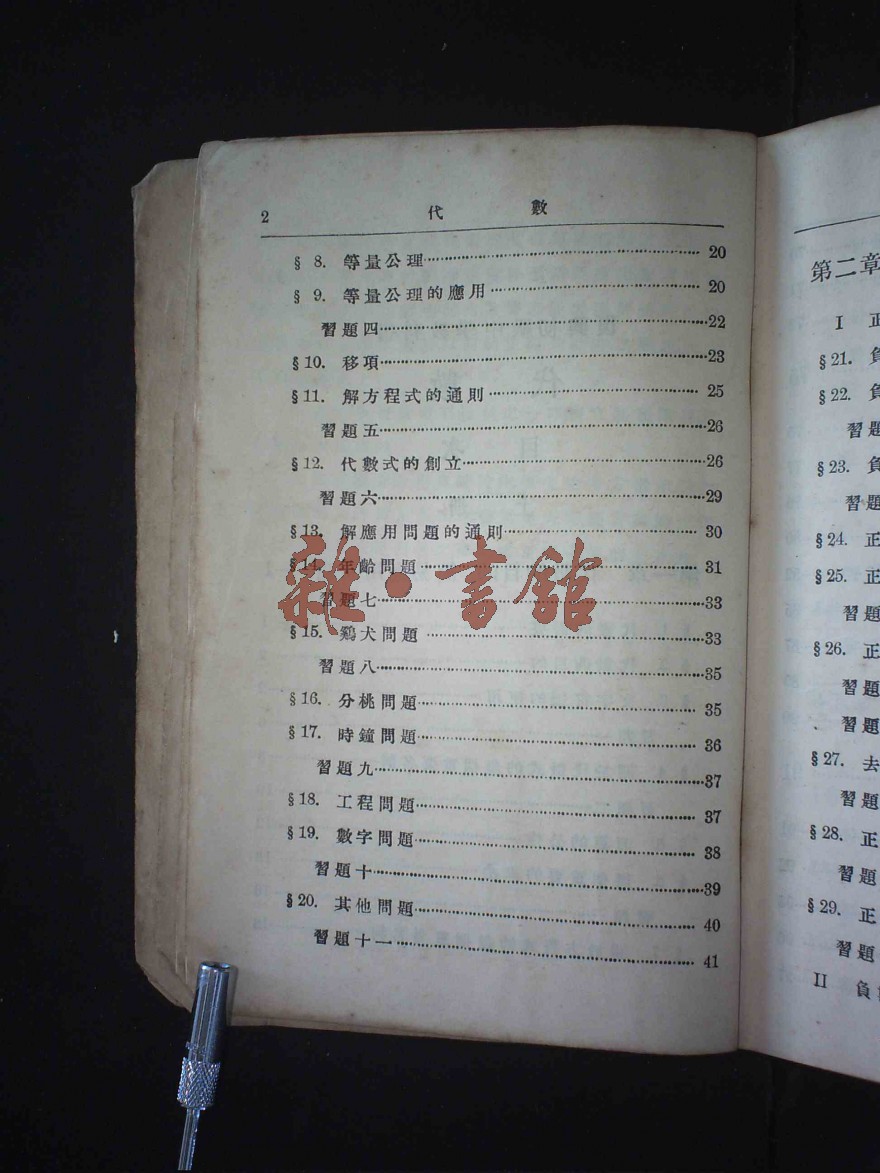 2 代數
§ 8. 等量公理 20
§ 9. 等量公理的應用 20
習題四 22
§10. 移項 23
§11. 解方程式的通則 25
習題五 26
§12. 代數式的創立 26
習題六 29
§13. 解應用問題的通則 30
§14. 年齡問題 31
習題七 33
§15. 鷄犬問題 33
習題八 35
§16. 分桃問題 35
§17. 時鐘問題 36
習題九 37
§18. 工程問題 37
§19. 數字問題 38
習題十 39
§20. 其他問題 40
習題十一 41
雜·書館
第二章
I 正
§21. 負
§22. 負
習題
§23. 負
習題
§24. 正
§25. 正
習題
§26. 正
習題
習題
§27. 去
習題
§28. 正
習題
§29. 正
習題
II 負